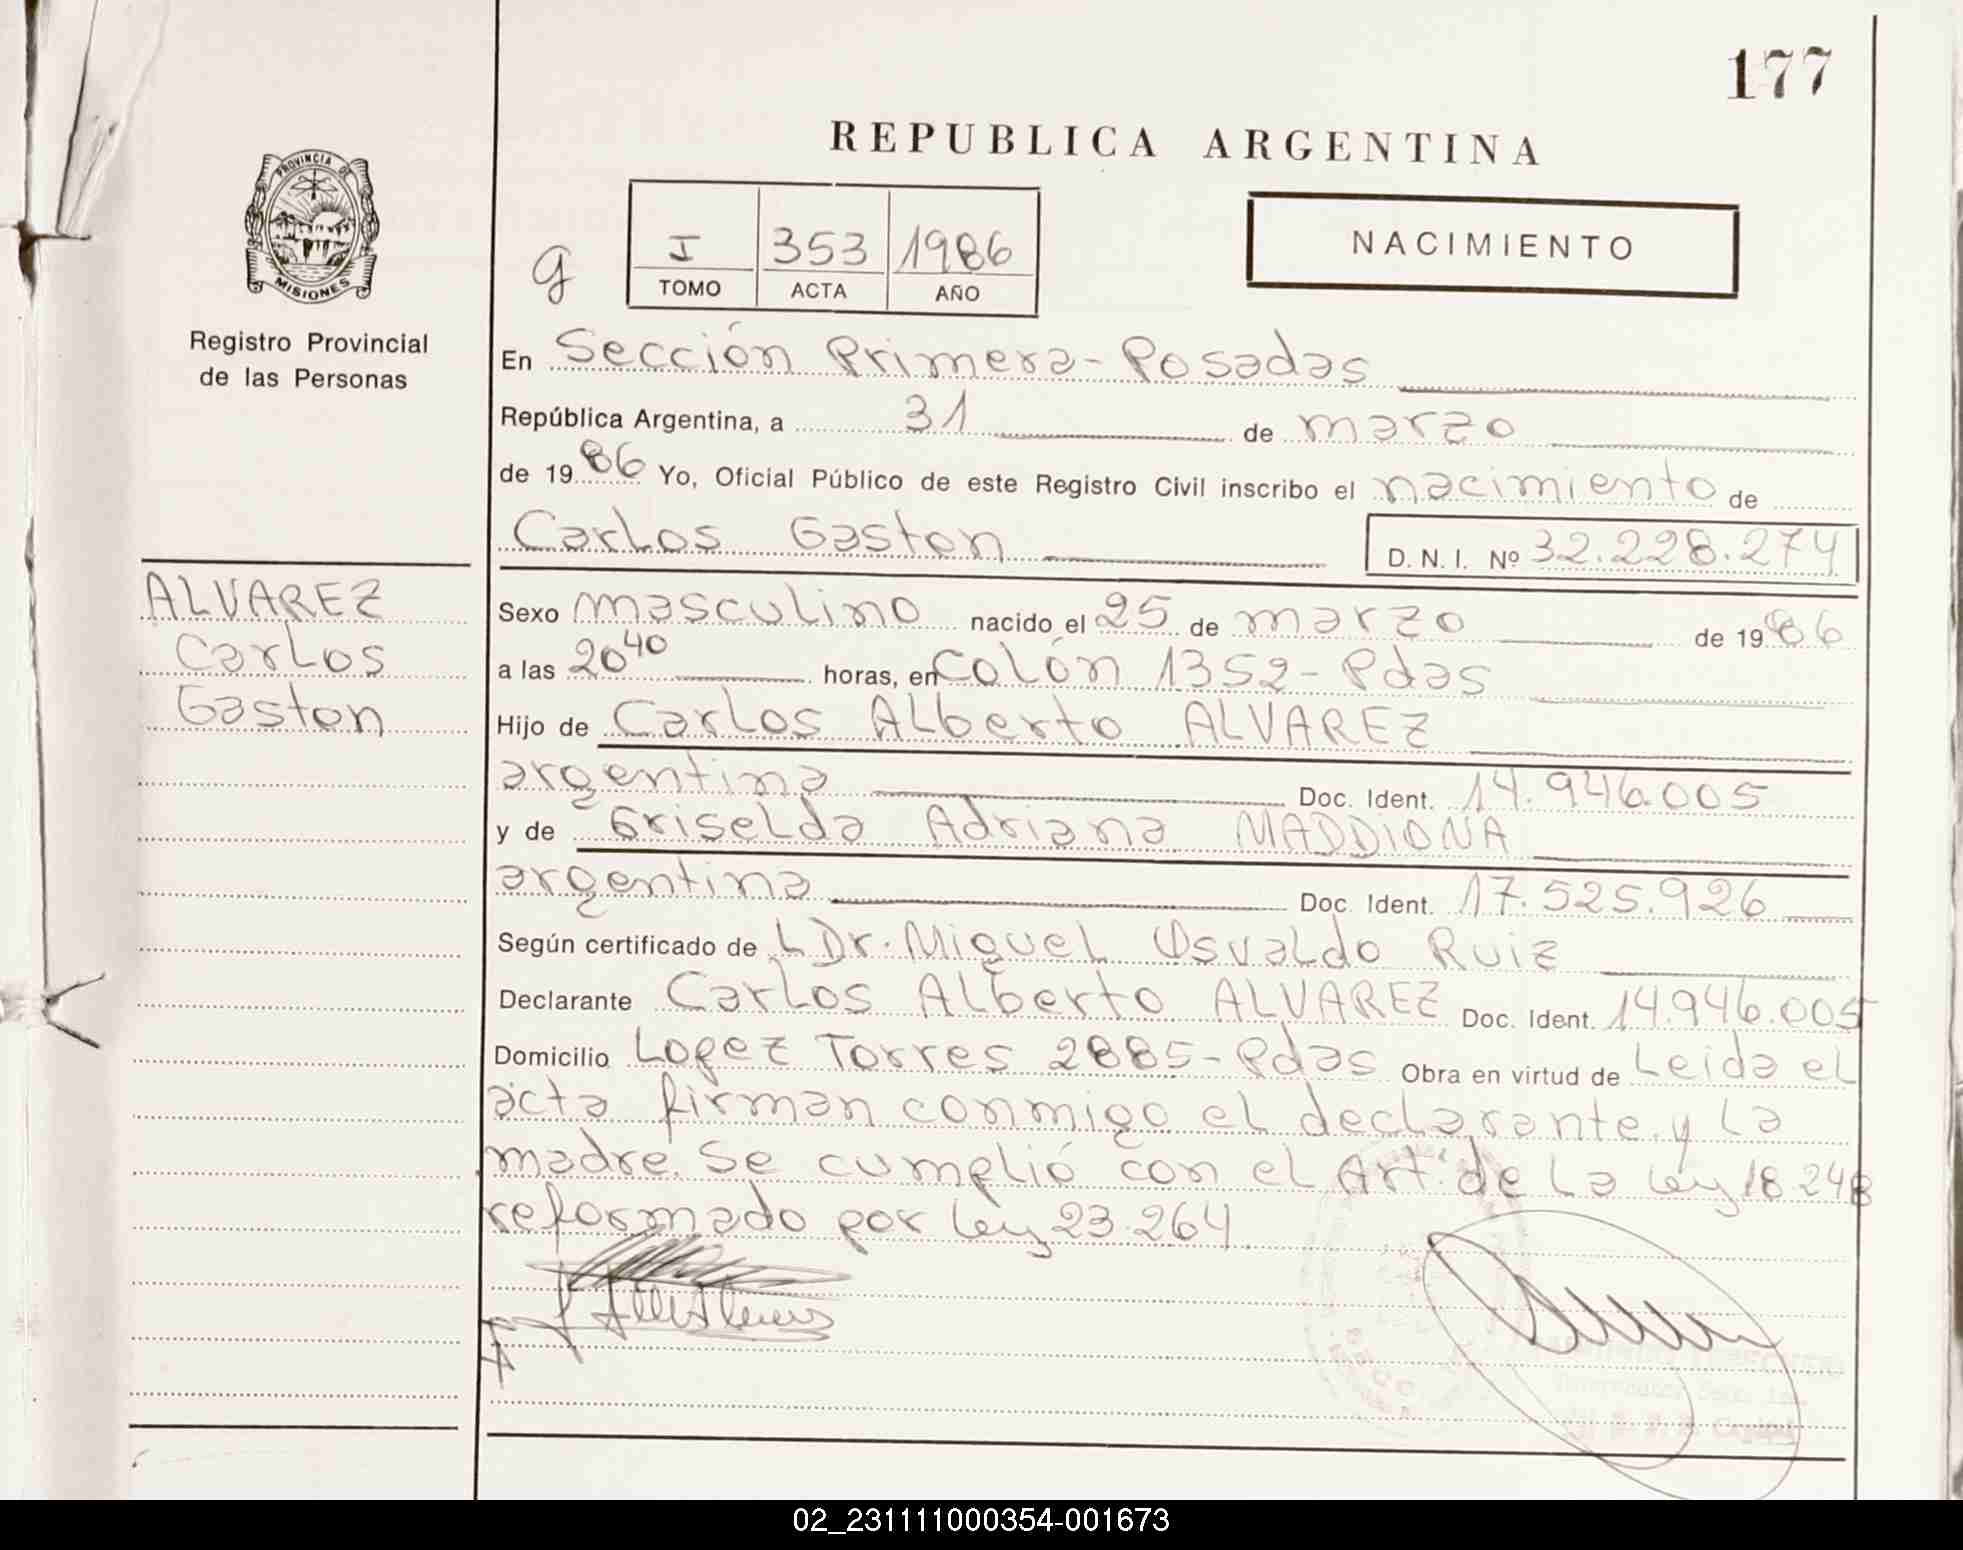 177
REPUBLICA ARGENTINA
PROVINCIA DE
MISIONES
Registro Provincial
de las Personas
g
I 353 1986
TOMO ACTA AÑO
NACIMIENTO
En Sección Primera - Posadas
República Argentina, a 31 de marzo
de 1986 Yo, Oficial Público de este Registro Civil inscribo el nacimiento de
Carlos Gaston D. N. I. Nº 32.228.274
ALVAREZ
Carlos
Gaston
Sexo masculino nacido el 25 de marzo de 1986
a las 20 40 horas, en Colón 1352 - Pdas
Hijo de Carlos Alberto ALVAREZ
argentina Doc. Ident. 14.946.005
y de Griselda Adriana MADDIONA
argentina Doc. Ident. 17.525.926
Según certificado de L Dr. Miguel Osvaldo Ruiz
Declarante Carlos Alberto ALVAREZ Doc. Ident. 14.946.005
Domicilio Lopez Torres 2885 - Pdas Obra en virtud de Leida el
acta firman conmigo el declarante y la
madre. Se cumplió con el Art. de la Ley 18.248
reformado por Ley 23.264
02_231111000354-001673